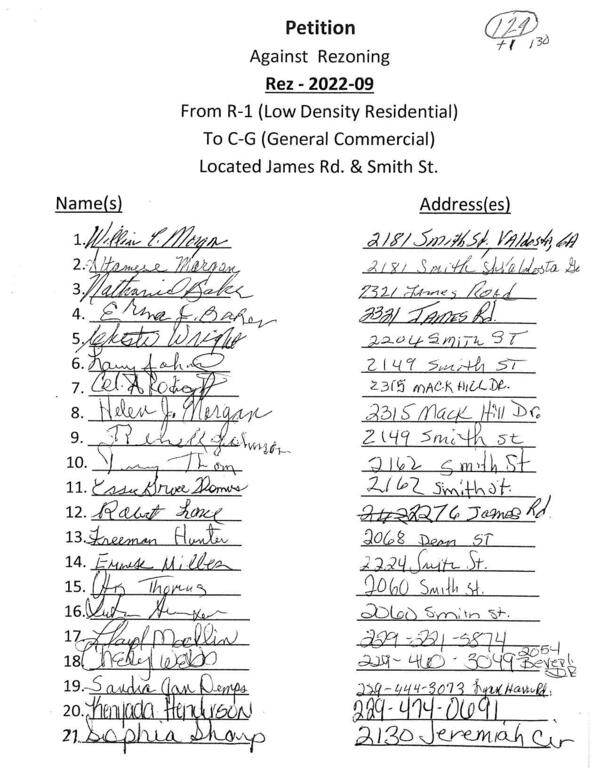 Petition
129
+1 130
Against Rezoning
Rez - 2022-09
From R-1 (Low Density Residential)
To C-G (General Commercial)
Located James Rd. & Smith St.
Name(s) Address(es)
1. Morgan 2181 Smith St. Valdosta, GA
2. Altamese Morgan 2181 Smith St Valdosta Ga
3. Nathaniel Baker 2321 James Road
4. Erma J. Baker 2321 James Rd.
5. Wright 2204 Smith ST
6. Larry John 2149 Smith ST
7. 2315 MACK HILL DR.
8. Helen J. Morgan 2315 Mack Hill Dr.
9. Johnson 2149 Smith st
10. Thom 2162 Smith St
11. Essie Thomas 2162 Smith st.
12. Robert 2276 James Rd.
13. Freeman Hunter 2068 Dean ST
14. Ernest Miller 2224 Smith St.
15. Thomas 2060 Smith St.
16. 2060 Smith st.
17. Lloyd 229-221-5874
18. Webb 229-460-3049 2054 Beverly DR
19. Sandra Jan Demps 229-444-3073
20. Kenyada Henderson 229-474-0691
21. Sophia Sharp 2130 Jeremiah Cir